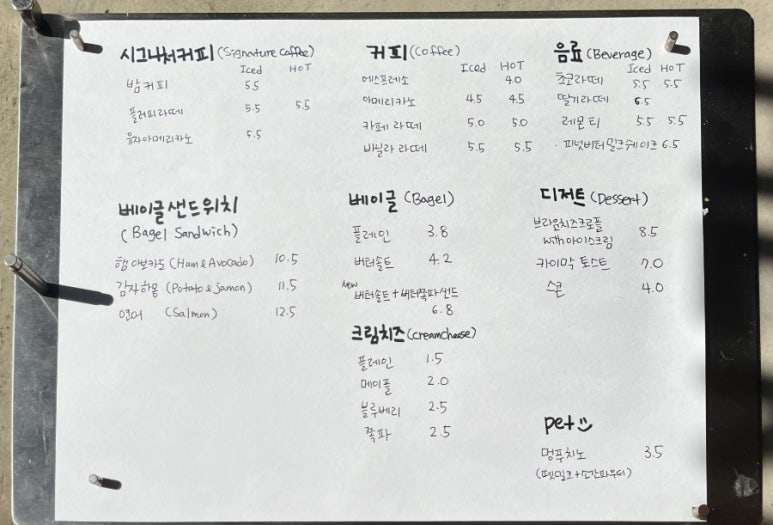 시그니처커피 (Signature Coffee)
Iced HOT
밤커피 5.5
플러피라떼 5.5 5.5
유자아메리카노 5.5
커피 (Coffee)
Iced HOT
에스프레소 4.0
아메리카노 4.5 4.5
카페라떼 5.0 5.0
바닐라 라떼 5.5 5.5
음료 (Beverage)
Iced HOT
초코라떼 5.5 5.5
딸기라떼 6.5
레몬티 5.5 5.5
· 피넛버터밀크쉐이크 6.5
베이글샌드위치
(Bagel Sandwich)
햄아보카도 (Ham & Avocado) 10.5
감자하몽 (Potato & Jamon) 11.5
연어 (Salmon) 12.5
베이글 (Bagel)
플레인 3.8
버터솔트 4.2
new 버터솔트+버터쪽파샌드
6.8
크림치즈 (creamcheese)
플레인 1.5
메이플 2.0
블루베리 2.5
쪽파 2.5
디저트 (Dessert)
브라운치즈크로플
with아이스크림 8.5
카이막 토스트 7.0
스콘 4.0
pet
멍푸치노 3.5
(펫밀크+소간파우더)